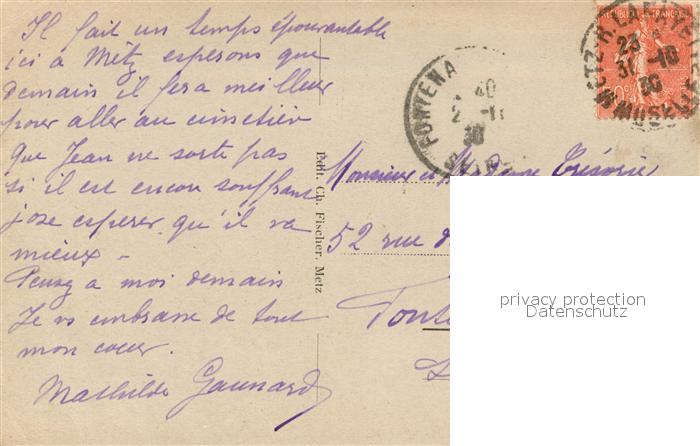 Il fait un temps épouvantable
ici a Metz esperons que
demain il fera meilleur
pour aller au cimetière
Que Jean ne sorte pas
si il est encore souffrant
jose esperer qu'il va
mieux –
Pensez a moi demain
Je vs embrasse de tout
mon coeur.
Mathilde Gaunard
Patr. Ch. Fischer, Metz
FONTENA
40
2 - 11
30
METZ-R. LAFAYETTE
23
31 - 10
30
MOSELLE
Monsieur et
52 rue d
Fonte
privacy protection
Datenschutz